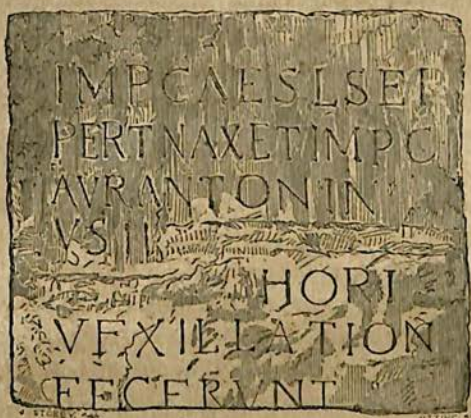 IMPCAESLSEP
PERTNAXETIMPC
AVRANTONIN
VSII
HORI
VEXILLATION
FECERVNT